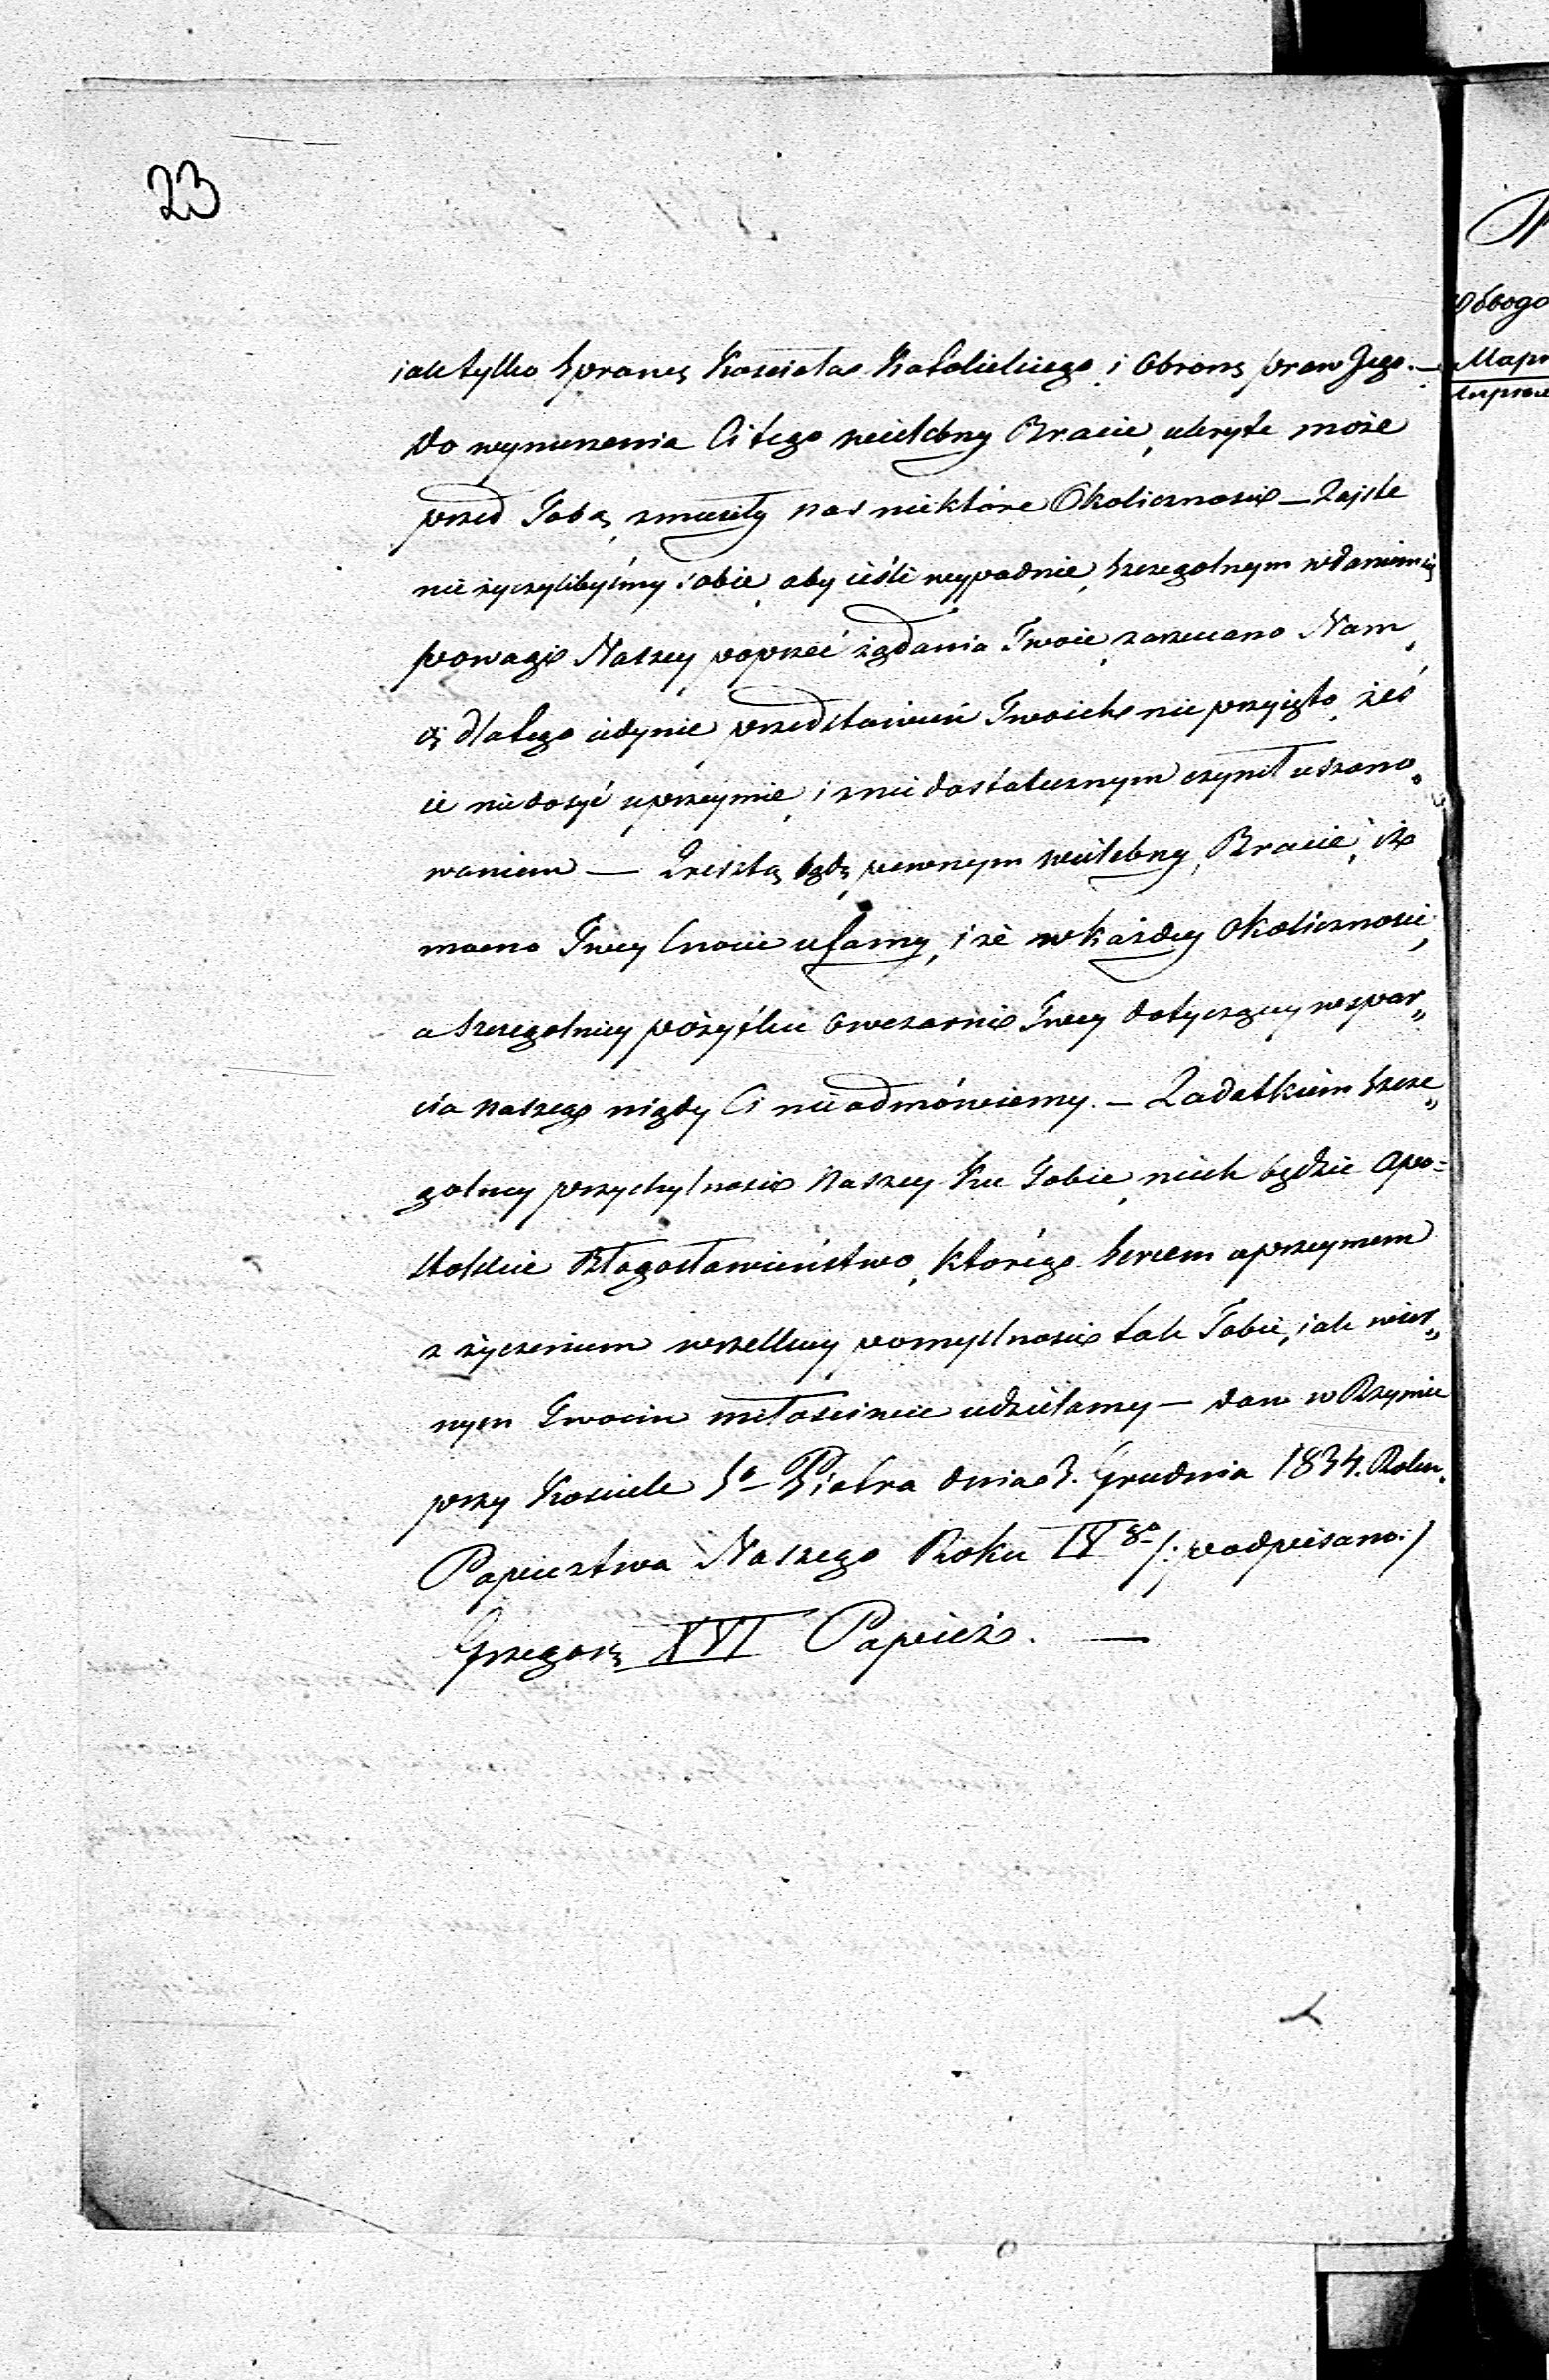 23
iak tylko Sprawę Kościoła Katolickiego i Obronę praw Jego. —
Do wynurzenia Ci tego wielebny Bracie, ukryte może
przed Tobą, zmusiły nas niektóre Okoliczności — Zajste
nie życzylibyśmy sobie, aby ieśli wypadnie, Szczegolnym wdaniem się
powagi Naszey poprzeć żądania Twoie, zarzucano Nam,
iż dlatego iedynie przedstawień Twoich nie przyięto, żeś
ie nie dosyć uprzeymie, i z nie dostatecznym czynił uszano„
waniem — Zresztą bądź pewnym wielebny Bracie, iż
mocno Twey Cnocie ufamy, i że w każdey Okoliczności,
a Szczegolniey pożytku Owczarni Twey dotyczącey wspar„
cia naszego nigdy Ci nie odmówiemy. — Zadatkiem Szcze„
golney przychylności Naszey Ku Tobie, niech będzie Apo=
stolskie Błogosławieństwo, którego Sercem uprzeymem
z życzeniem wszelkiey pomyślności tak Tobie, iak wier„
nym Twoim miłościwie udzielamy — dan w Rzymie
przy Kościele Sº Piotra dnia 3. Grudnia 1834. Roku.
Papieztwa Naszego Roku IVgo /: podpisano :/
Grzegorz XVI Papież. —